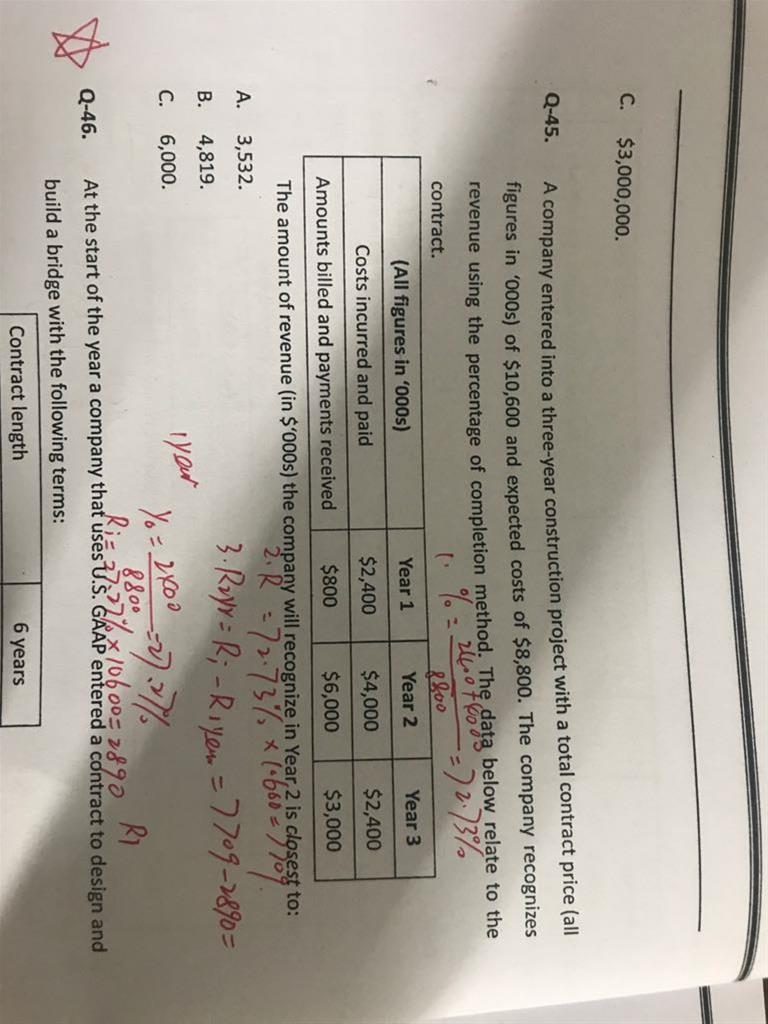 C. $3,000,000.
Q-45. A company entered into a three-year construction project with a total contract price (all
figures in ‘000s) of $10,600 and expected costs of $8,800. The company recognizes
revenue using the percentage of completion method. The data below relate to the
contract.
1. % = 2400+4000 / 8800 = 72.73%
(All figures in ‘000s) Year 1 Year 2 Year 3
Costs incurred and paid $2,400 $4,000 $2,400
Amounts billed and payments received $800 $6,000 $3,000
The amount of revenue (in $’000s) the company will recognize in Year 2 is closest to:
2. R = 72.73% × 10600 = 7709
A. 3,532.
3. = 7709-2890=
B. 4,819.
C. 6,000.
1 year % = 2400 / 8800 = 27.27%
R1 = 27.27% × 10600 = 2890 R1
Q-46. At the start of the year a company that uses U.S. GAAP entered a contract to design and
build a bridge with the following terms:
Contract length 6 years